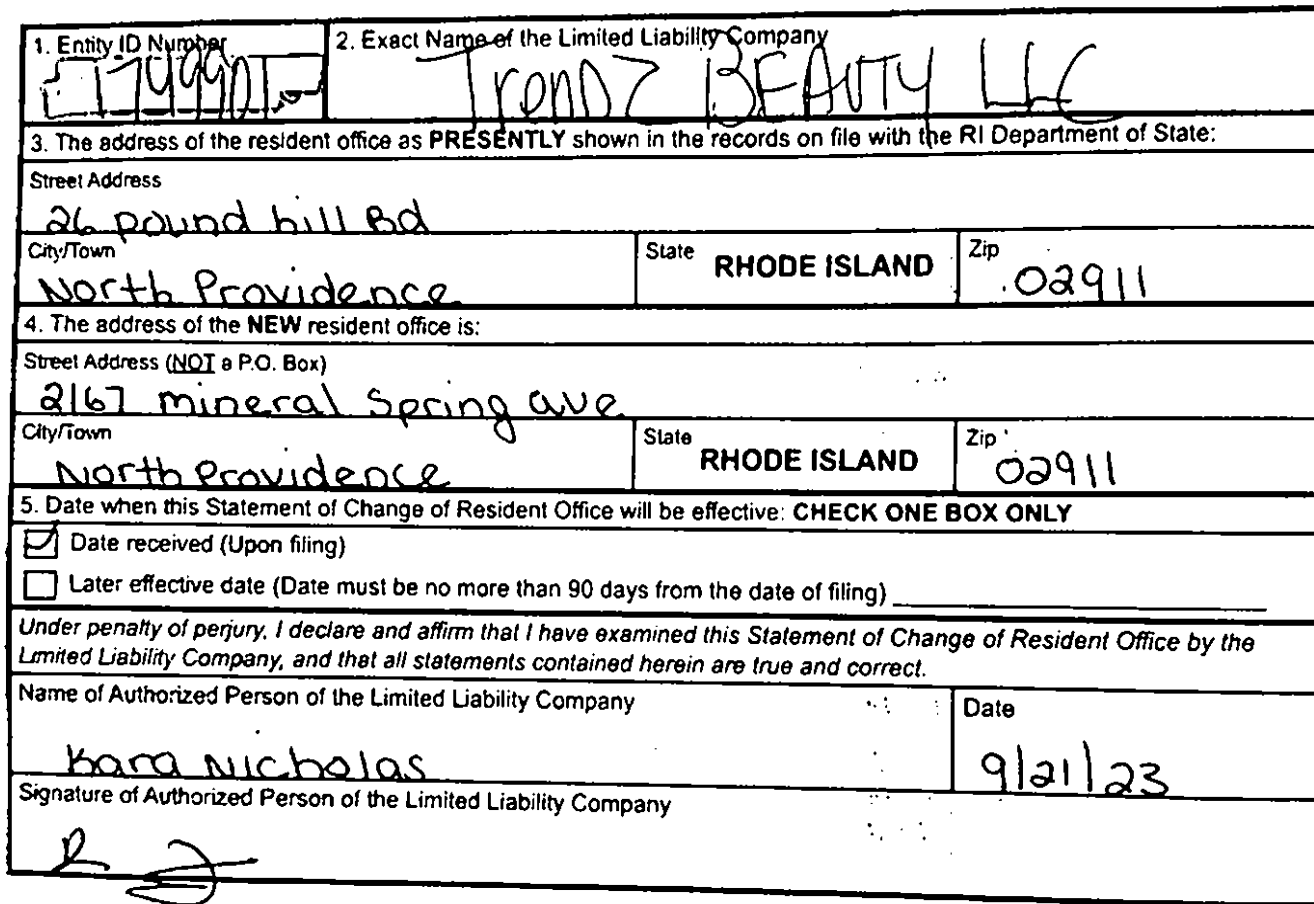 1. Entity ID Number
2. Exact Name of the Limited Liability Company
Trendz BEAUTY LLC
3. The address of the resident office as PRESENTLY shown in the records on file with the RI Department of State:
Street Address
26 pound hill Rd
City/Town
North Providence
State RHODE ISLAND
Zip
02911
4. The address of the NEW resident office is:
Street Address (NOT a P.O. Box)
2167 mineral Spring ave
City/Town
North Providence
State RHODE ISLAND
Zip
02911
5. Date when this Statement of Change of Resident Office will be effective: CHECK ONE BOX ONLY
Date received (Upon filing)
Later effective date (Date must be no more than 90 days from the date of filing)
Under penalty of perjury, I declare and affirm that I have examined this Statement of Change of Resident Office by the
Limited Liability Company, and that all statements contained herein are true and correct.
Name of Authorized Person of the Limited Liability Company
Kara Nicholas
Date
9/21/23
Signature of Authorized Person of the Limited Liability Company